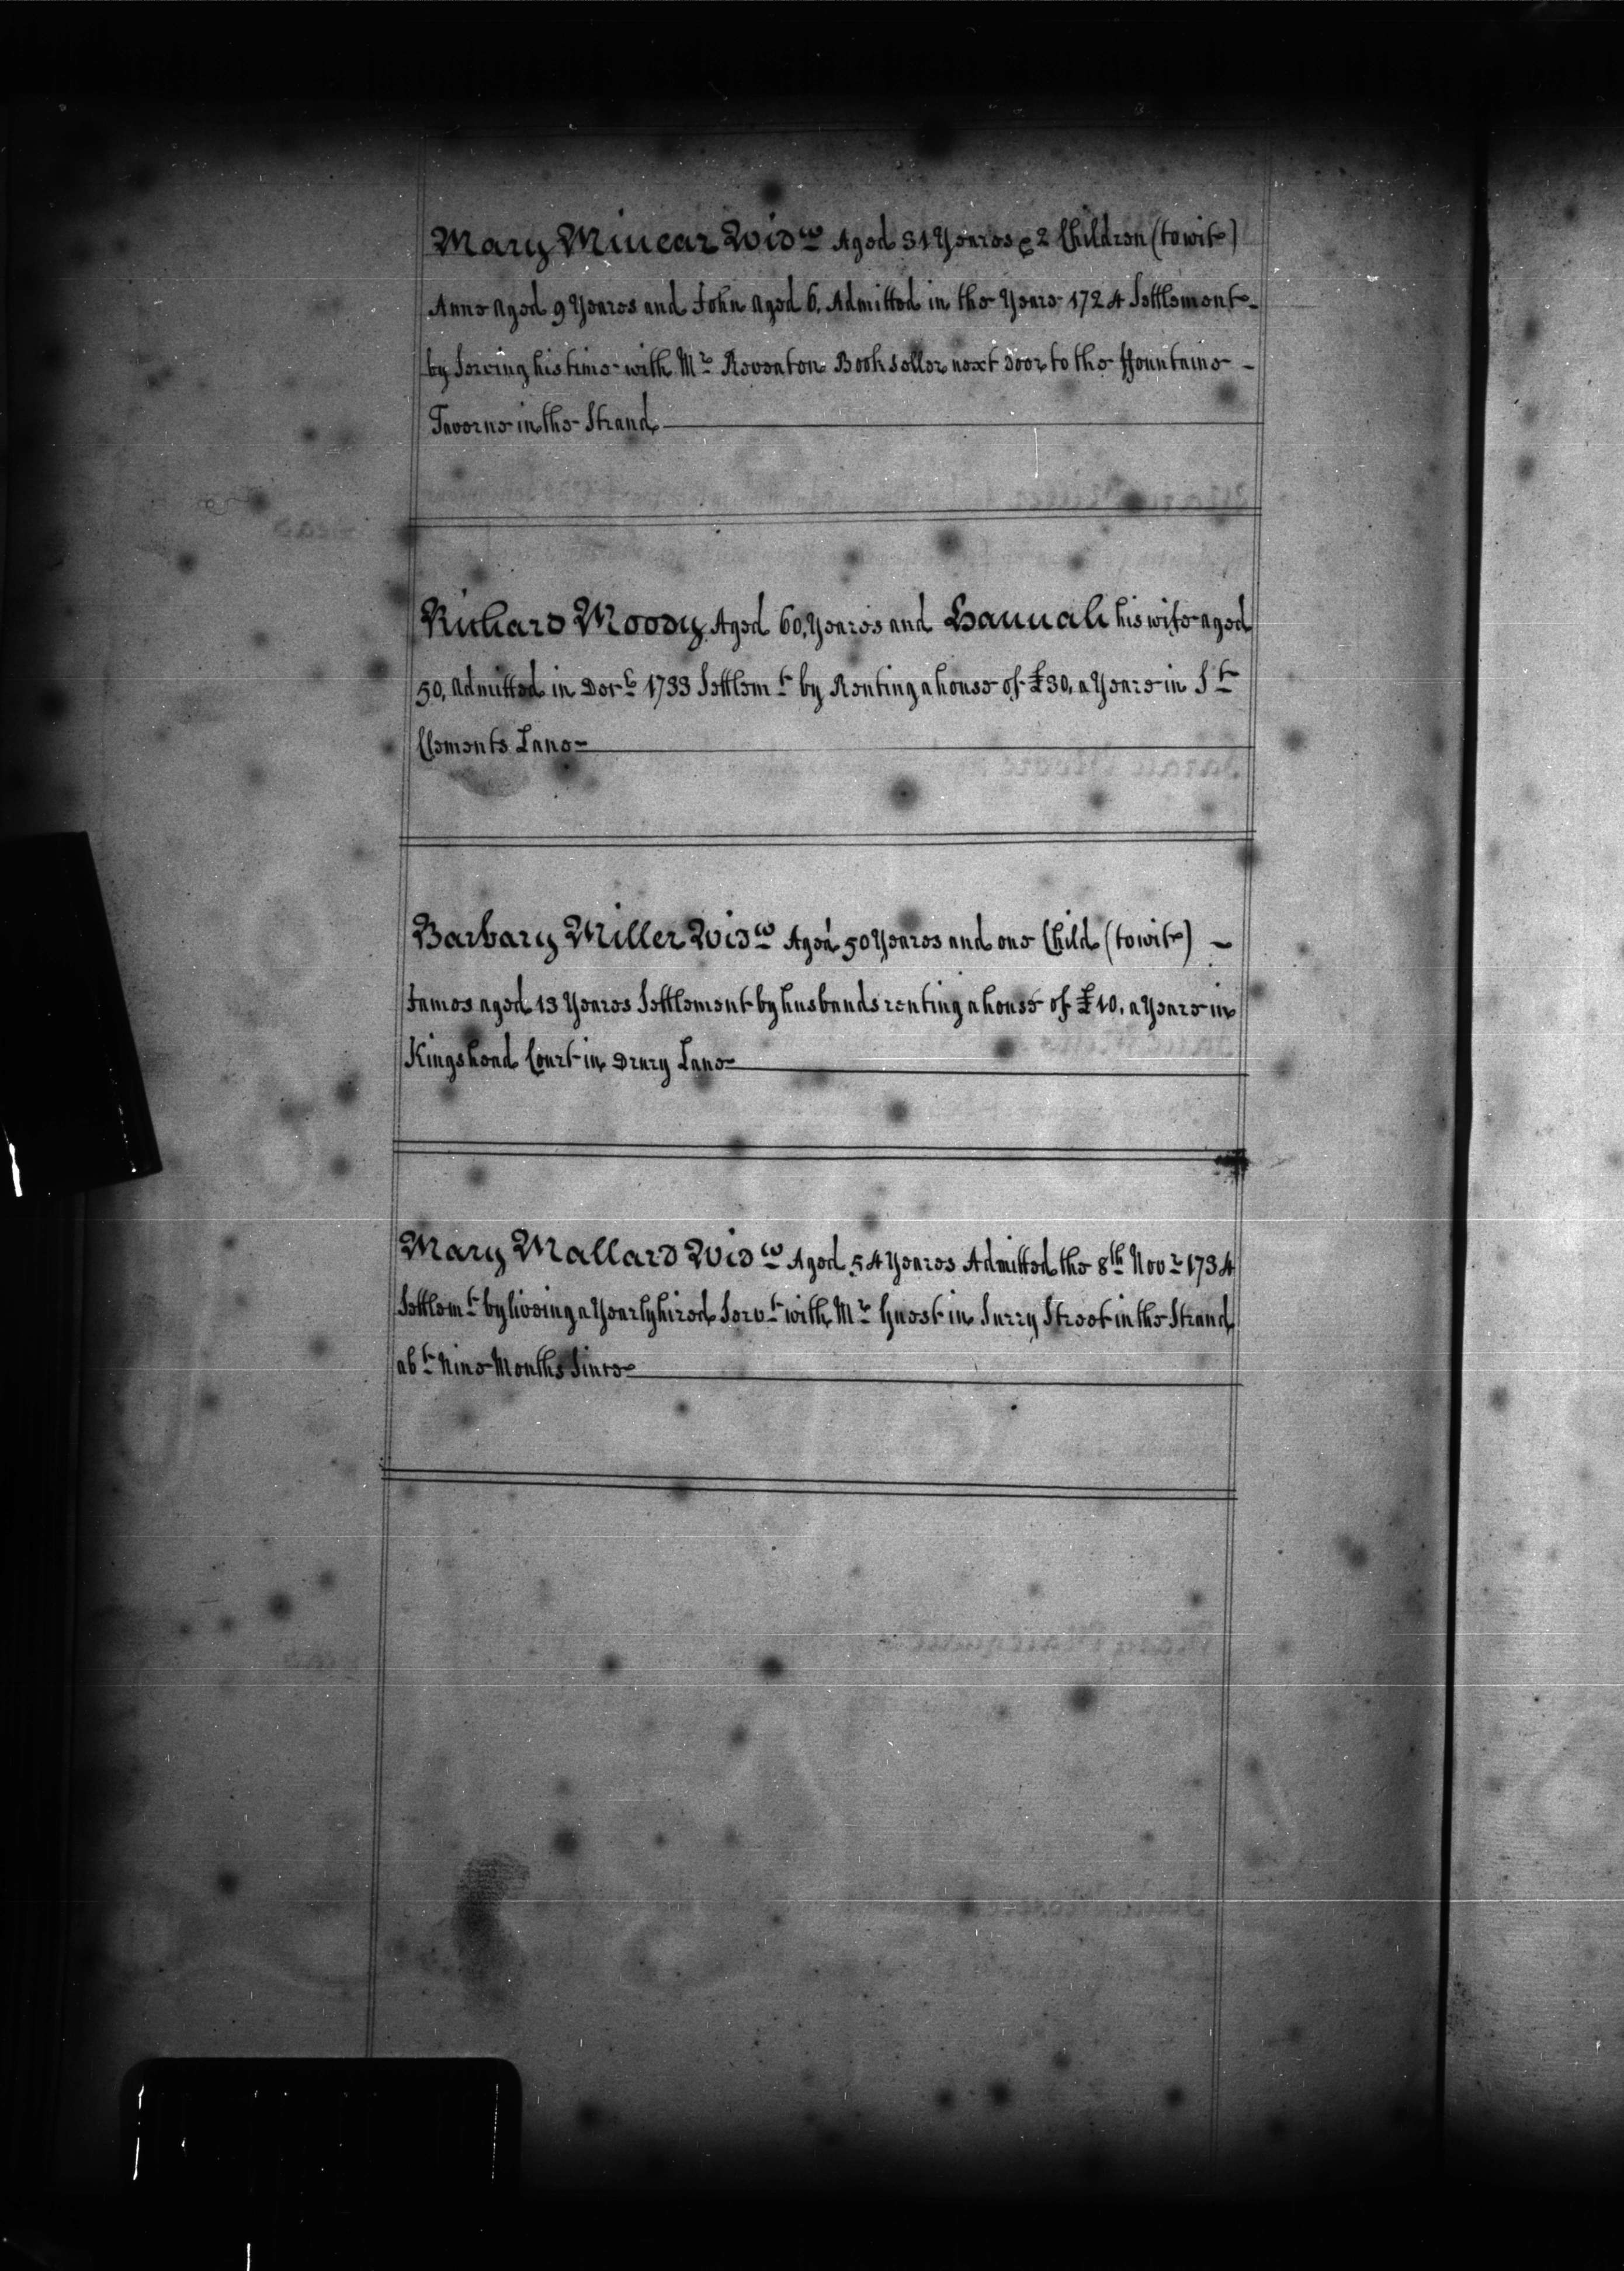 Mary Minear Widw Aged 31 Yeares & 2 Children (towit)
Anne aged 9 Yeares and John aged 6, Admitted in the Yeare 1724 Settlement
by Serving his time with Mr Reventon Bookseller next door to the ffountaine
Taverne in the Strand
Richard Moody Aged 60, Yeares and Hannah his wife aged
50, Admitted in Decr 1733 Settlemt by Renting a house of £30, a Yeare in St
Clements Lane
Barbary Miller Widw Aged 50 Yeares and one Child (towit)
James aged 13 Yeares Settlement by husbands renting a house of £10, a Yeare in
Kingshead Court in Drury Lane
Mary Mallard Widw Aged 54 Yeares Admitted the 8th Novr 1734
Settlemt by liveing a Yearly hired Servt with Mr Guest in Surry Street in the Strand
abt Nine Months Since